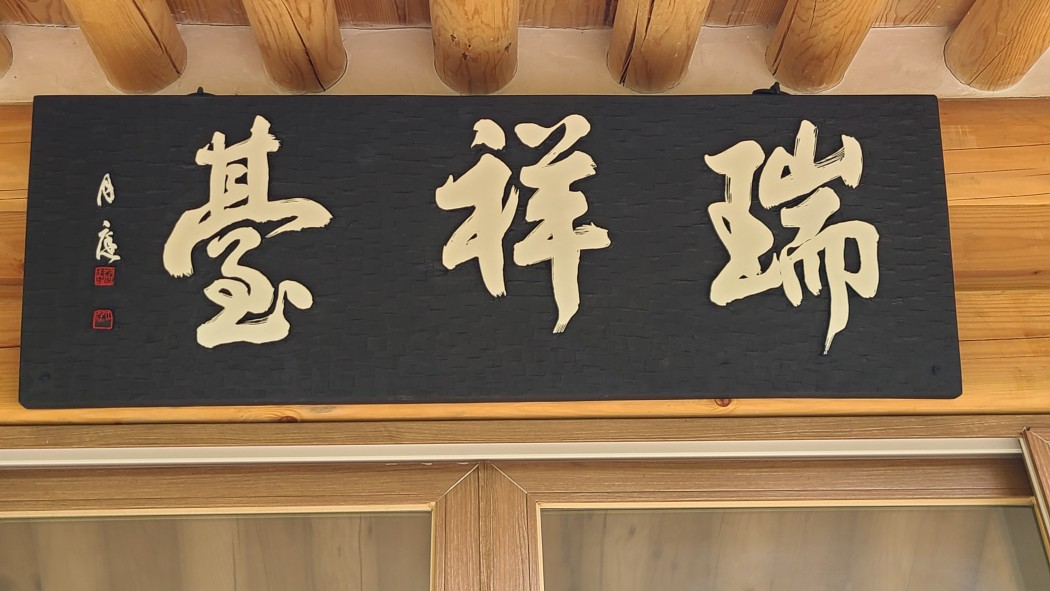 瑞祥臺
月應